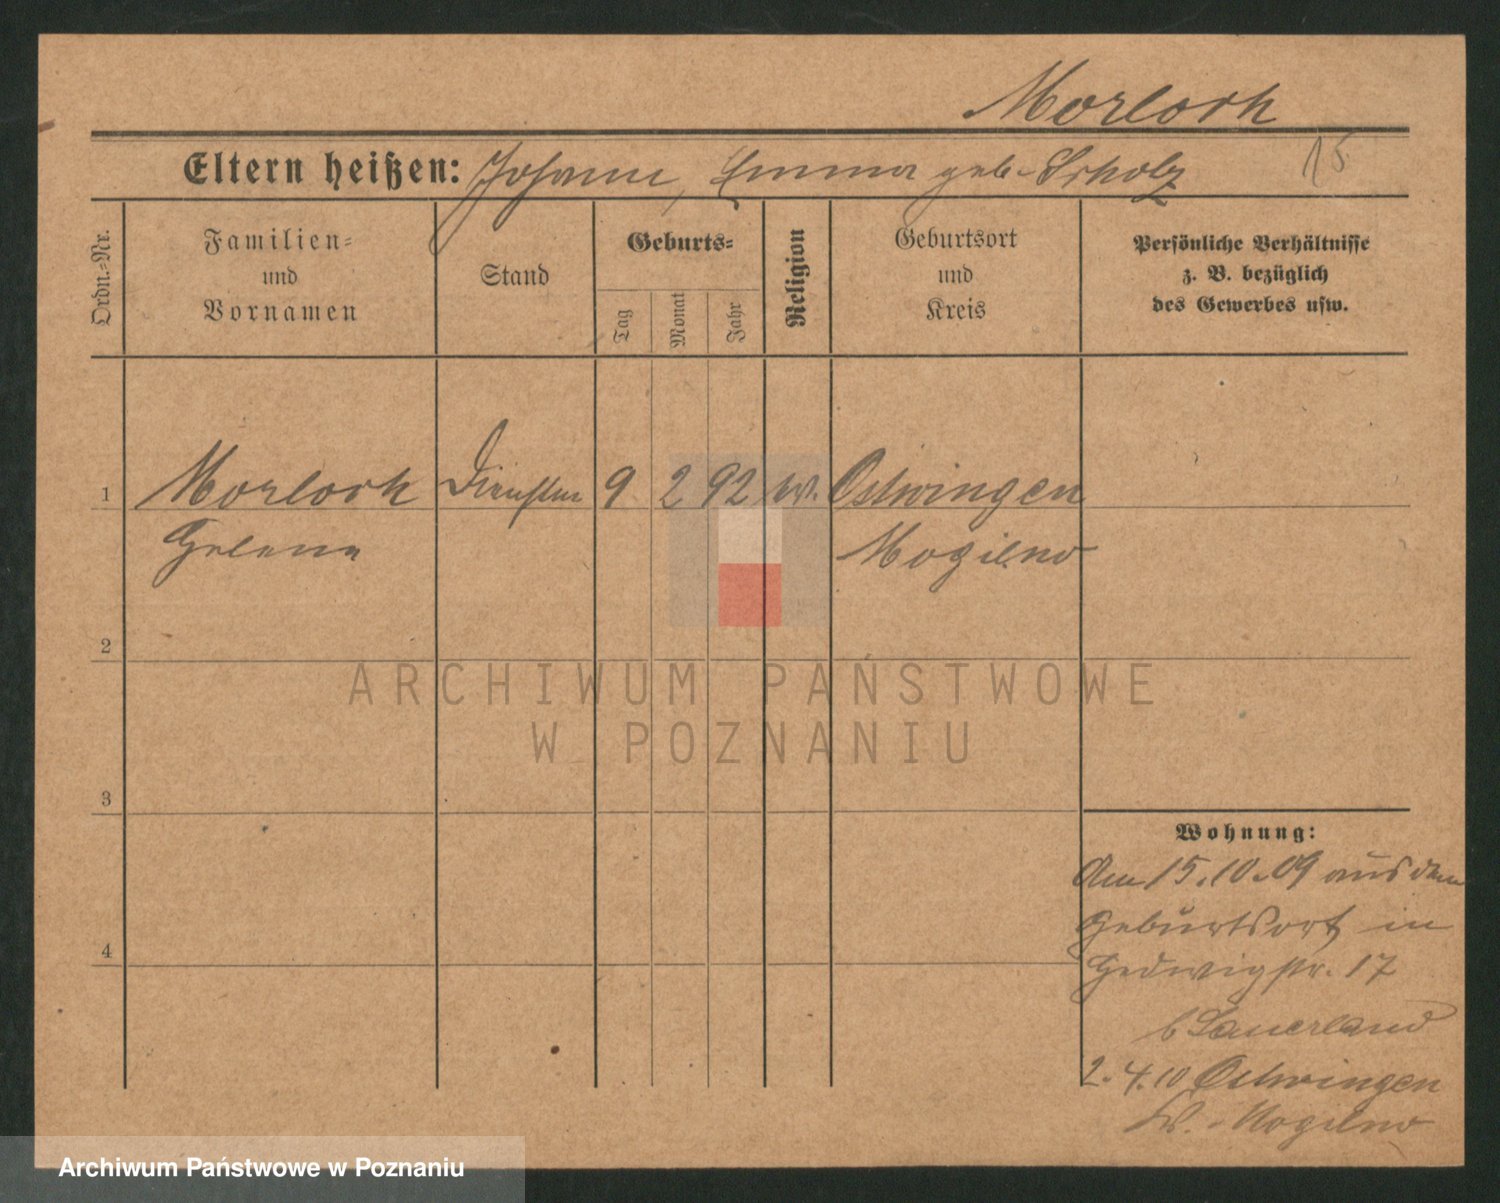 Morlock
15
Eltern heißen: Johann, Emma geb. Scholz
Ordn.-Nr.
Familien-
und
Vornamen
Stand
Geburts-
Tag
Monat
Jahr
Religion
Geburtsort
und
Kreis
Persönliche Verhältnisse
z. B. bezüglich
des Gewerbes usw.
1 Morlock 9 2 92 ev. Ostwingen
Helene Mogilno
2
3
4
Wohnung:
Am 15.10.09 aus dem
Geburtsort in
Hedwigstr. 17
b Sauerland
2.4.10 Ostwingen
Kr. Mogilno
ARCHIWUM PAŃSTWOWE
W POZNANIU
Archiwum Państwowe w Poznaniu